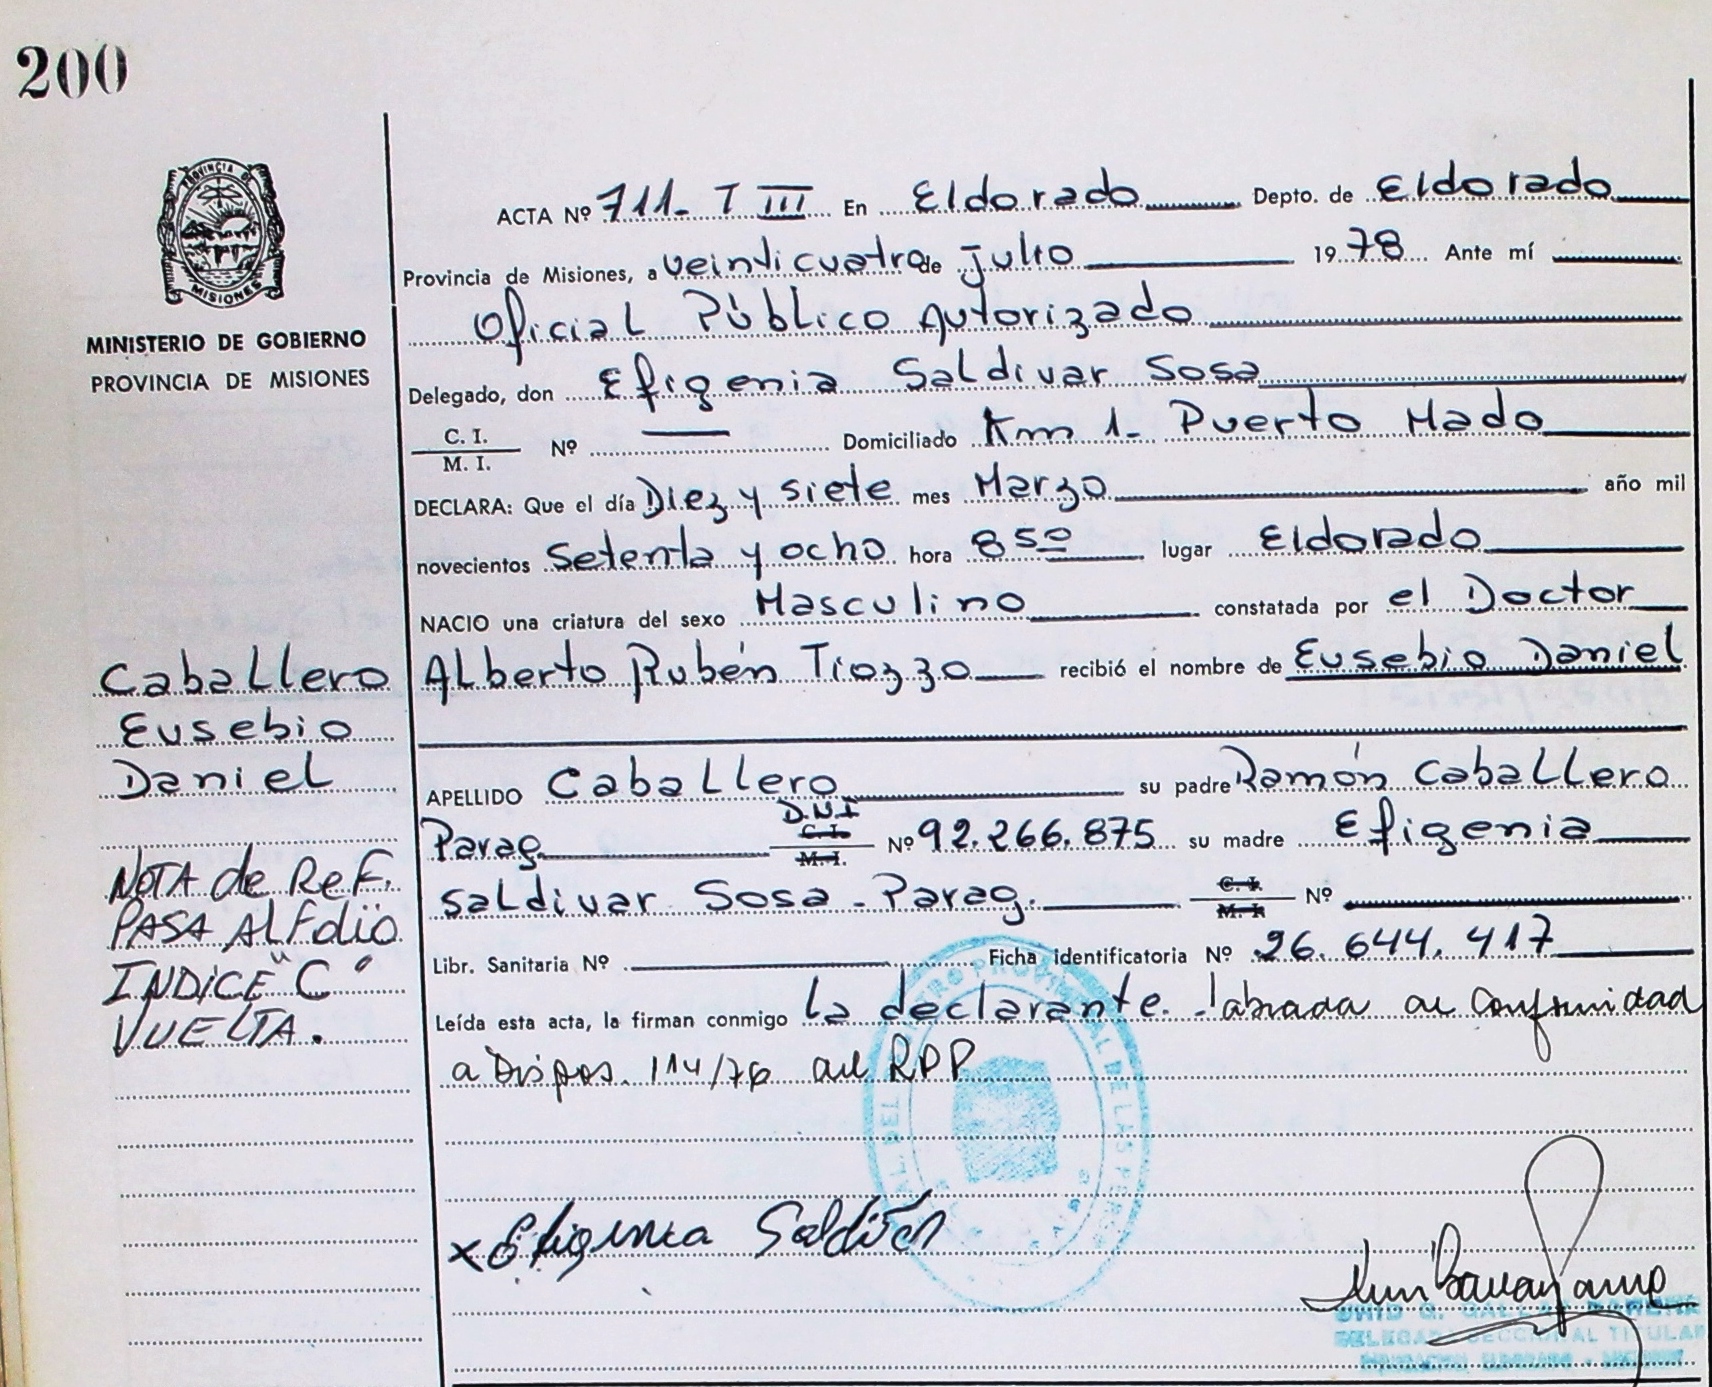 200
PROVINCIA DE
MISIONES
MINISTERIO DE GOBIERNO
PROVINCIA DE MISIONES
ACTA Nº 711- T III En Eldorado Depto. de Eldorado
Provincia de Misiones, a veinticuatro de Julio 1978 Ante mí
Oficial Público Autorizado
Delegado, don Efigenia Saldivar Sosa
C. I.
M. I. Nº — Domiciliado Km 1- Puerto Mado
DECLARA: Que el día Diez y siete mes Marzo año mil
novecientos Setenta y ocho hora 8 50 lugar Eldorado
NACIO una criatura del sexo Masculino constatada por el Doctor
Alberto Rubén Tiozzo recibió el nombre de Eusebio Daniel
APELLIDO Caballero su padre Ramón Caballero
Parag D.N.I C.I. M.I. Nº 92.266.875 su madre Efigenia
Saldivar Sosa - Parag. C.I. M.I. Nº
Libr. Sanitaria Nº Ficha identificatoria Nº 26.644.417
Leída esta acta, la firman conmigo la declarante. labrada en conformidad
a Dispos. 114/76 del RPP
Caballero
Eusebio
Daniel
NOTA de ReF.
PASA AL Folio
INDICE "C"
VUELTA.
x Efigenia Saldivar
DELEGADO SECCIONAL TITULAR